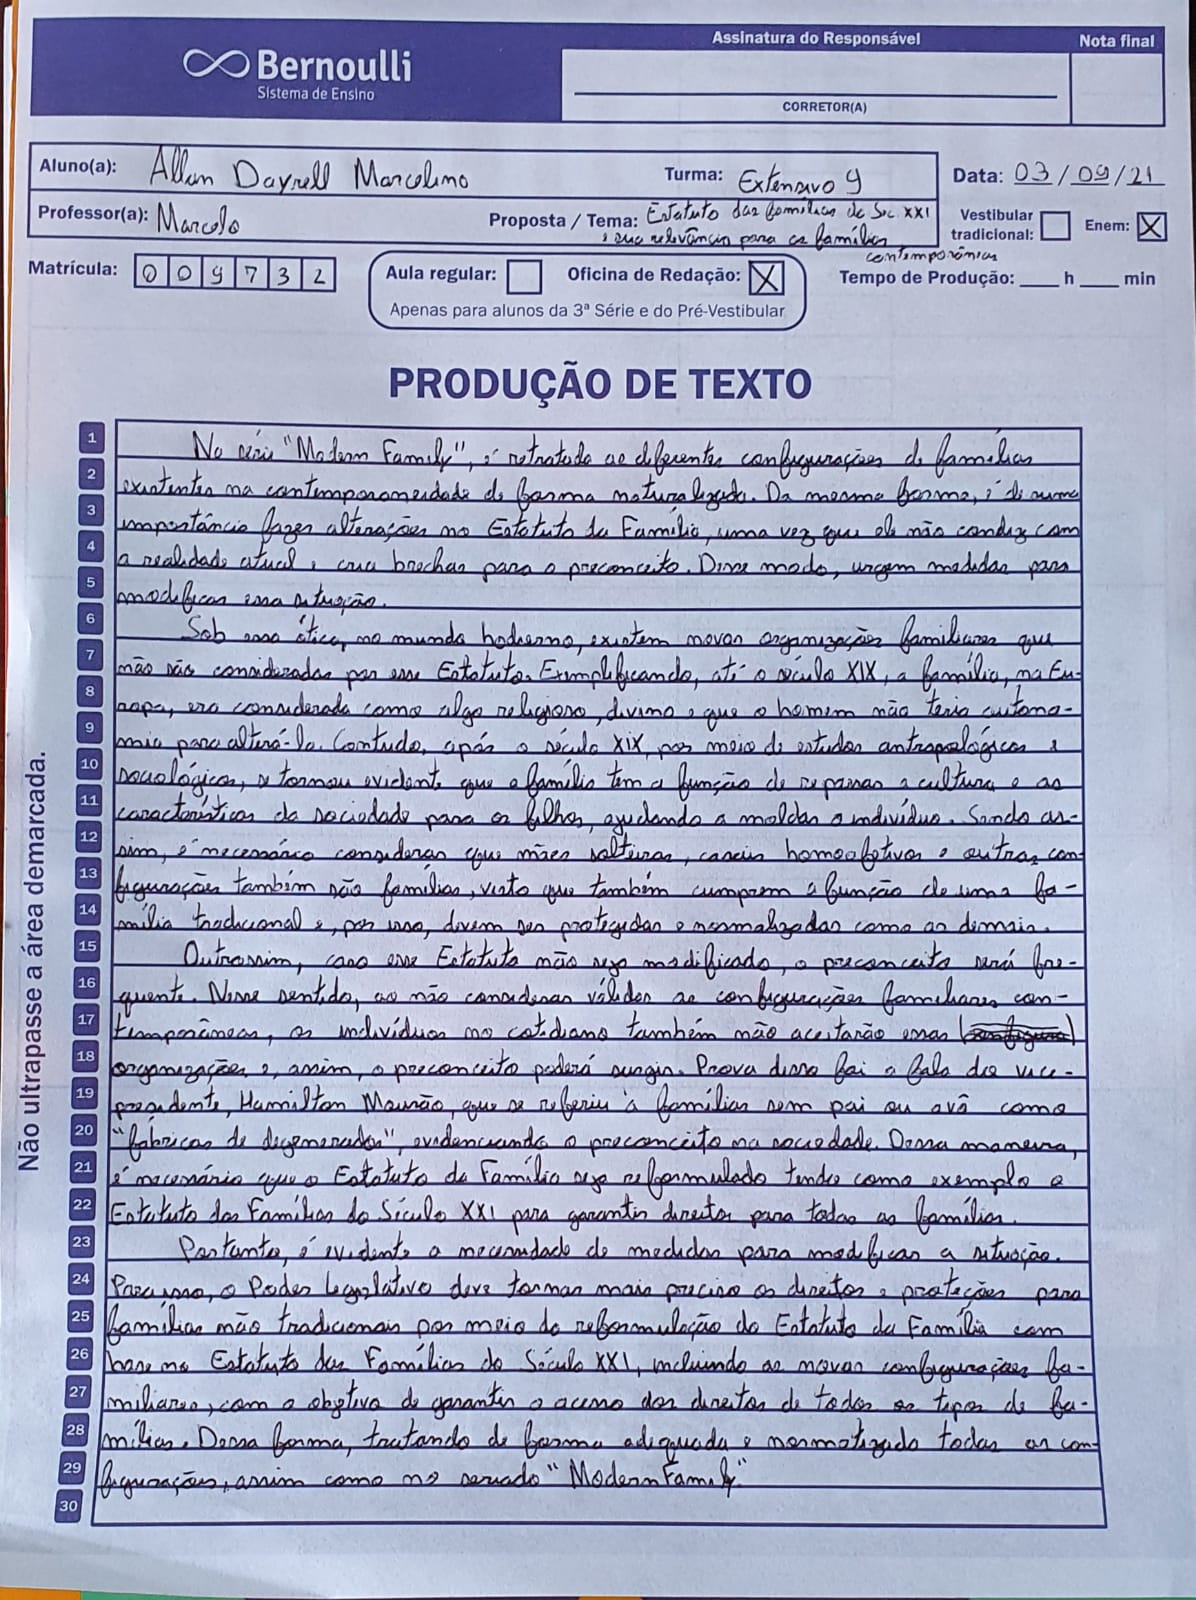 Bernoulli
Sistema de Ensino
Assinatura do Responsável
CORRETOR(A)
Nota final
Aluno(a): Allan Dayrell Marcelino
Turma: Extensivo 9
Data: 03/09/21
Professor(a): Marcelo
Proposta / Tema: Estatuto das famílias do Séc XXI
e sua relevância para as famílias
contemporâneas
Vestibular tradicional:
Enem: X
Matrícula: 009732
Aula regular:
Oficina de Redação: X
Apenas para alunos da 3ª Série e do Pré-Vestibular
Tempo de Produção: ____ h ____ min
PRODUÇÃO DE TEXTO
Não ultrapasse a área demarcada.
1 Na série "Modern Family", é retratado as diferentes configurações de famílias
2 existentes na contemporaneidade de forma naturalizada. Da mesma forma, é de suma
3 importância fazer alterações no Estatuto da Família, uma vez que ele não condiz com
4 a realidade atual e cria brechas para o preconceito. Desse modo, urgem medidas para
5 modificar essa situação.
6 Sob essa ótica, no mundo hodierno, existem novas organizações familiares que
7 não são consideradas por esse Estatuto. Exemplificando, até o século XIX, a família, na Eu-
8 ropa, era considerada como algo religioso, divino e que o homem não teria autono-
9 mia para alterá-la. Contudo, após o século XIX, por meio de estudos antropológicos e
10 sociológicos, se tornou evidente que a família tem a função de repassar a cultura e as
11 características da sociedade para os filhos, ajudando a moldar o indivíduo. Sendo as-
12 sim, é necessário considerar que mães solteiras, casais homoafetivos e outras con-
13 figurações também são famílias, visto que também cumprem a função de uma fa-
14 mília tradicional e, por isso, devem ser protegidas e normalizadas como as demais.
15 Outrossim, caso esse Estatuto não seja modificado, o preconceito será fre-
16 quente. Nesse sentido, ao não considerar válidas as configurações familiares con-
17 temporâneas, os indivíduos no cotidiano também não aceitarão essas
18 organizações e, assim, o preconceito poderá surgir. Prova disso foi a fala do vice-
19 presidente, Hamilton Mourão, que se referiu à famílias sem pai ou avô como
20 "fábricas de degenerados", evidenciando o preconceito na sociedade. Dessa maneira,
21 é necessário que o Estatuto da Família seja reformulado tendo como exemplo o
22 Estatuto das Famílias do Século XXI para garantir direitos para todas as famílias.
23 Portanto, é evidente a necessidade de medidas para modificar a situação.
24 Para isso, o Poder Legislativo deve tornar mais preciso os direitos e proteções para
25 famílias não tradicionais por meio da reformulação do Estatuto da Família com
26 base no Estatuto das Famílias do Século XXI, incluindo as novas configurações fa-
27 miliares, com o objetivo de garantir o acesso dos direitos de todos os tipos de fa-
28 mílias. Dessa forma, tratando de forma adequada e normatizada todas as con-
29 figurações, assim como no seriado "Modern Family".
30